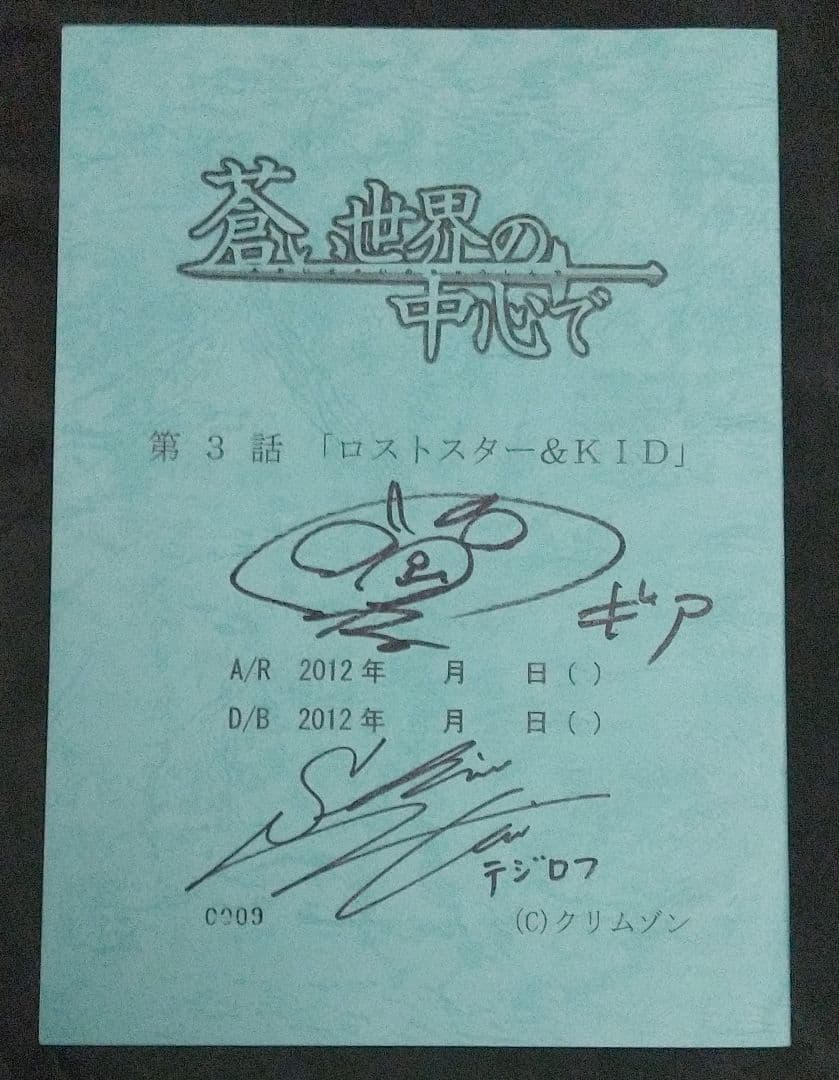 蒼い世界の
中心で
第 3 話 「ロストスター&KID」
ギア
A/R 2012年 月 日( )
D/B 2012年 月 日( )
テジロフ
0009
(C)クリムゾン